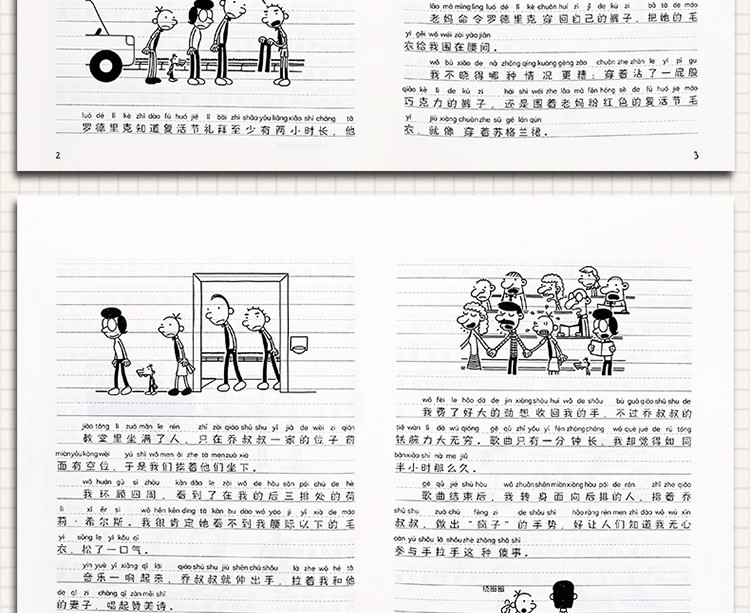 luó dé lǐ kè zhī dào fù huó jié lǐ bài zhì shǎo yǒu liǎng xiǎo shí cháng tā
罗德里克知道复活节礼拜至少有两小时长，他
2
lǎo mā mìng lìng luó dé lǐ kè chuān huí zì jǐ de kù zi bǎ tā de máo
老妈命令罗德里克穿回自己的裤子，把她的毛
yī gěi wǒ wéi zài yāo jiān
衣给我围在腰间。
wǒ bù xiǎo de nǎ zhǒng qíng kuàng gèng zāo chuān zhe zhān le yī pì gu
我不晓得哪种情况更糟：穿着沾了一屁股
qiǎo kè lì de kù zi hái shì wéi zhe lǎo mā fěn hóng sè de fù huó jié máo
巧克力的裤子，还是围着老妈粉红色的复活节毛
yī jiù xiàng chuān zhe sū gé lán qún
衣，就像穿着苏格兰裙。
3
jiào táng lǐ zuò mǎn le rén zhǐ zài qiáo shū shu yī jiā de wèi zi qián
教堂里坐满了人，只在乔叔叔一家的位子前
miàn yǒu kòng wèi yú shì wǒ men āi zhe tā men zuò xià
面有空位，于是我们挨着他们坐下。
wǒ huán gù sì zhōu kàn dào le zài wǒ de hòu sān pái chù de hè
我环顾四周，看到了在我的后三排处的荷
lì xī ěr sī wǒ hěn kěn dìng tā kàn bu dào wǒ yāo jì yǐ xià de máo
莉·希尔斯。我很肯定她看不到我腰际以下的毛
yī sōng le yī kǒu qì
衣，松了一口气。
yīn yuè yī xiǎng qǐ lái qiáo shū shu jiù shēn chū shǒu lā zhe wǒ hé tā
音乐一响起来，乔叔叔就伸出手，拉着我和他
de qī zi chàng qǐ zàn měi shī
的妻子，唱起赞美诗。
wǒ fèi le hǎo dà de jìn xiǎng shōu huí wǒ de shǒu bù guò qiáo shū shu de
我费了好大的劲想收回我的手，不过乔叔叔的
tiě wàn lì dà wú qióng gē qǔ zhǐ yǒu yī fēn zhōng cháng wǒ què jué de rú tóng
铁腕力大无穷。歌曲只有一分钟长，我却觉得如同
bàn xiǎo shí nà me jiǔ
半小时那么久。
gē qǔ jié shù hòu wǒ zhuǎn shēn miàn xiàng hòu pái de rén zhǐ zhe qiáo
歌曲结束后，我转身面向后排的人，指着乔
shū shu zuò chū fēng zi de shǒu shì hǎo ràng rén men zhī dào wǒ wú xīn
叔叔，做出“疯子”的手势，好让人们知道我无心
cān yù shǒu lā shǒu zhè zhǒng shǎ shì
参与手拉手这种傻事。
绕圈圈